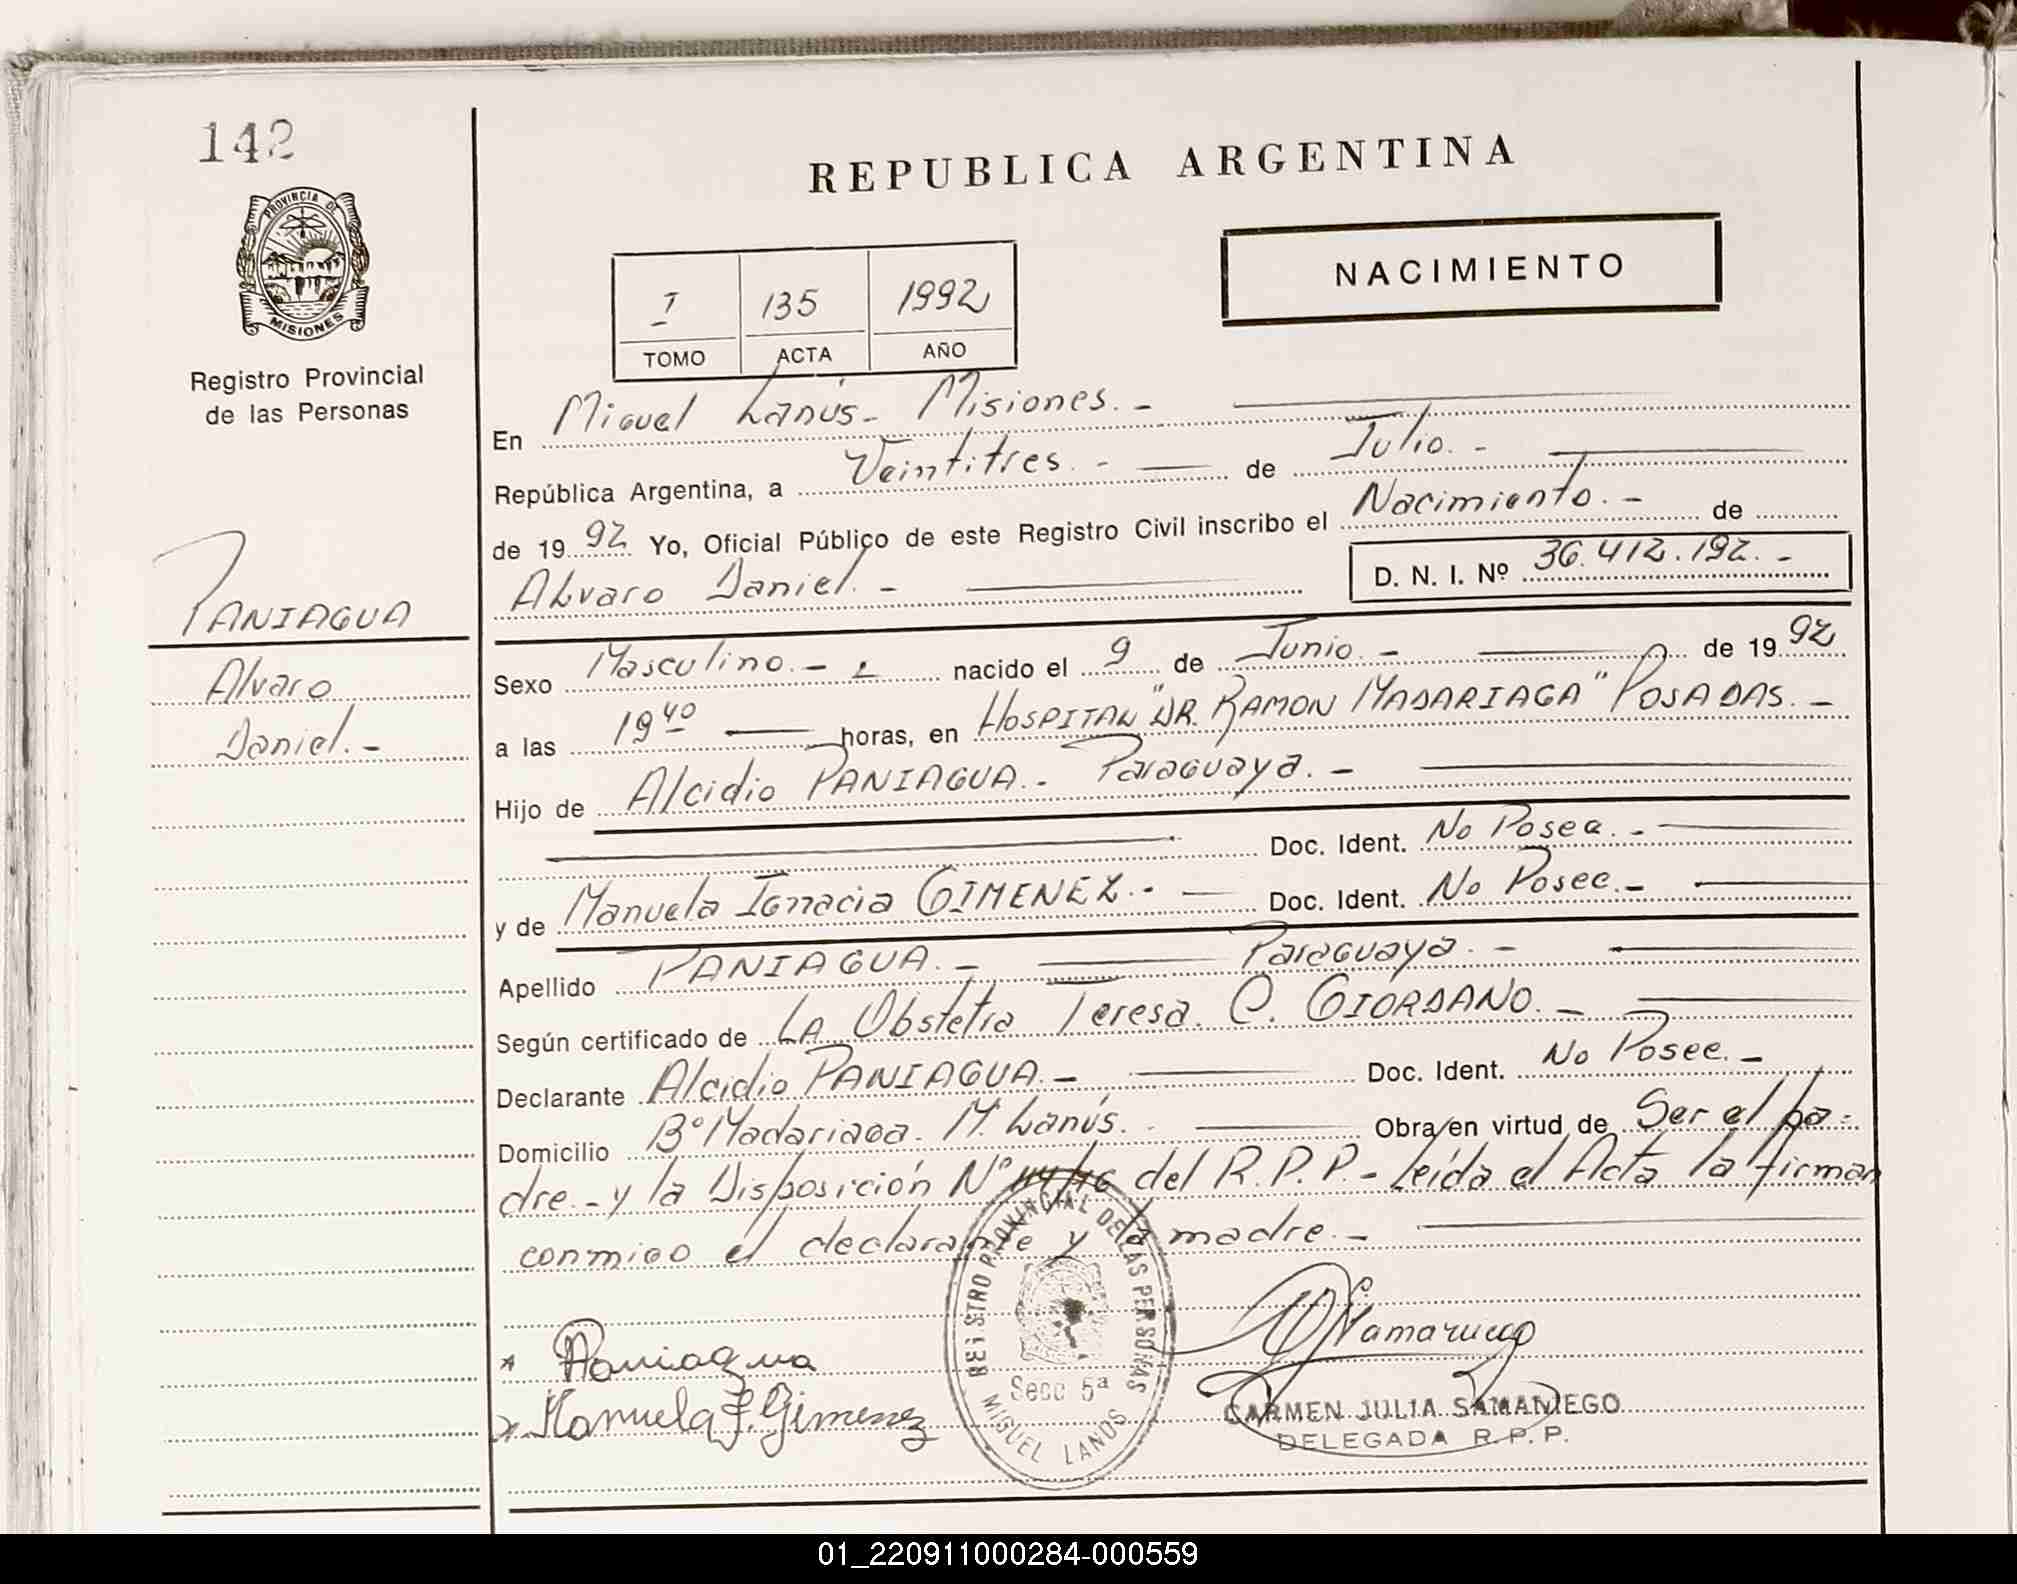 142
REPUBLICA ARGENTINA
PROVINCIA DE
MISIONES
NACIMIENTO
I 135 1992
TOMO ACTA AÑO
Registro Provincial
de las Personas
En Miguel Lanús - Misiones. -
República Argentina, a Veintitres. - de Julio. -
de 1992 Yo, Oficial Público de este Registro Civil inscribo el Nacimiento. - de
Alvaro Daniel. - D. N. I. Nº 36.412.192. -
PANIAGUA
Alvaro
Daniel. -
Sexo Masculino. - nacido el 9 de Junio. - de 1992
a las 19 40 horas, en HOSPITAL "DR. RAMON MADARIAGA" POSADAS. -
Hijo de Alcidio PANIAGUA. - Paraguaya. -
Doc. Ident. No Posee. -
y de Manuela Ignacia GIMENEZ. - Doc. Ident. No Posee. -
Apellido PANIAGUA. - Paraguaya. -
Según certificado de LA Obstetra Teresa. C. GIORDANO. -
Declarante Alcidio PANIAGUA. - Doc. Ident. No Posee. -
Domicilio Bº Madariaga. M. Lanús. Obra en virtud de Ser el pa-
dre. - y la Disposición Nº del R.P.P. - Leída el Acta la firman
conmigo el declarante y la madre. -
Paniagua
Manuela I. Gimenez
REGISTRO PROVINCIAL DE LAS PERSONAS
Secc 5ª
MIGUEL LANUS
Samaniego
CARMEN JULIA SAMANIEGO
DELEGADA R.P.P.
01_220911000284-000559